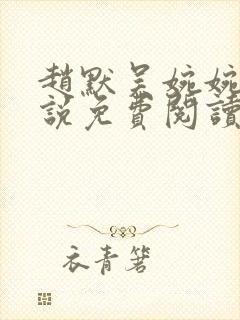 趙默吳婉婉
說免費閱讀
衣青箬